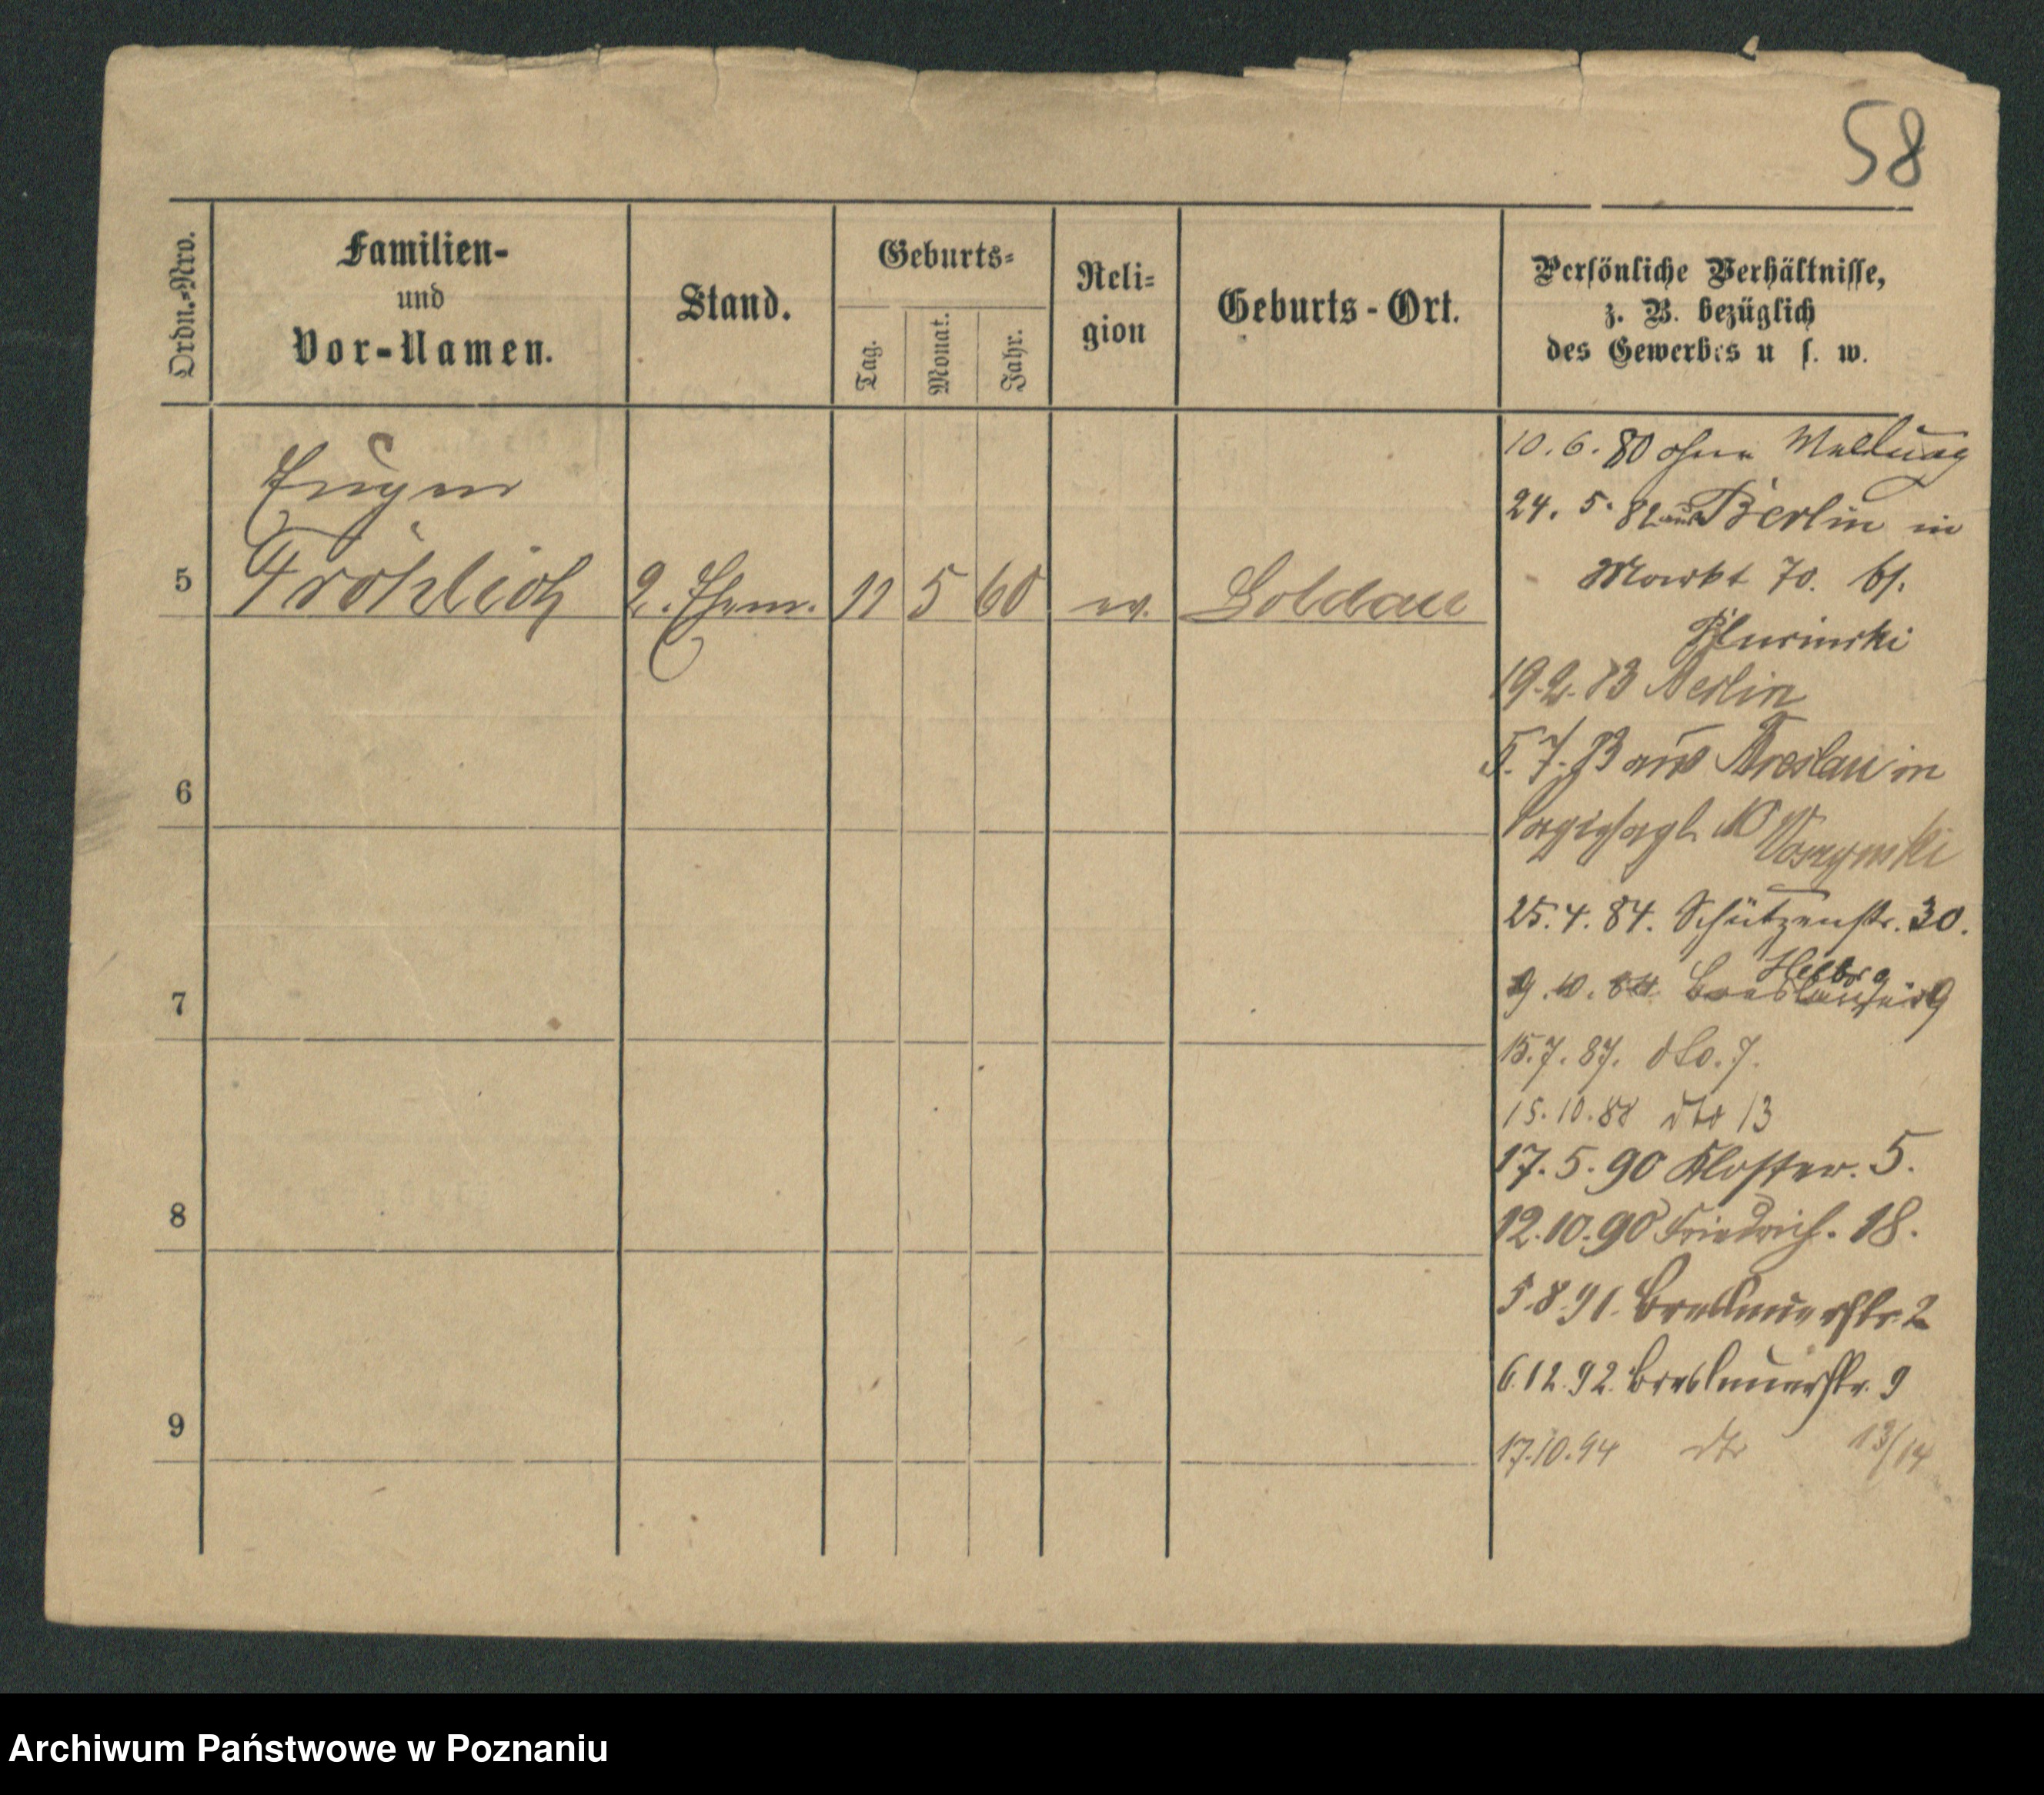 58
Ordn.-Nro.
Familien-
und
Vor-Namen.
Stand.
Geburts-
Tag.
Monat.
Jahr.
Reli-
gion
Geburts-Ort.
Persönliche Verhältnisse,
z. B. bezüglich
des Gewerbes u s. w.
Eugen
5 Fröhlich 2. 11 5 60 ev. Soldau
6
7
8
9
10. 6. 80 ohne Meldung
24. 5. 82 aus Berlin in
Markt 70. bs.
19. 2. 83 Berlin
5. 7. 83 aus Breslau in
10
25. 4. 84. Schützenstr. 30.
9. 10. 84. 9
15. 7. 87. dto. 7.
15. 10. 88 dto 13
17. 5. 90 Kloster. 5.
12. 10. 90 Friedrich. 18.
5. 8. 91. Breslauerstr. 2
6. 12. 92. Breslauerstr. 9
17. 10. 94 dto 13/14
Archiwum Państwowe w Poznaniu